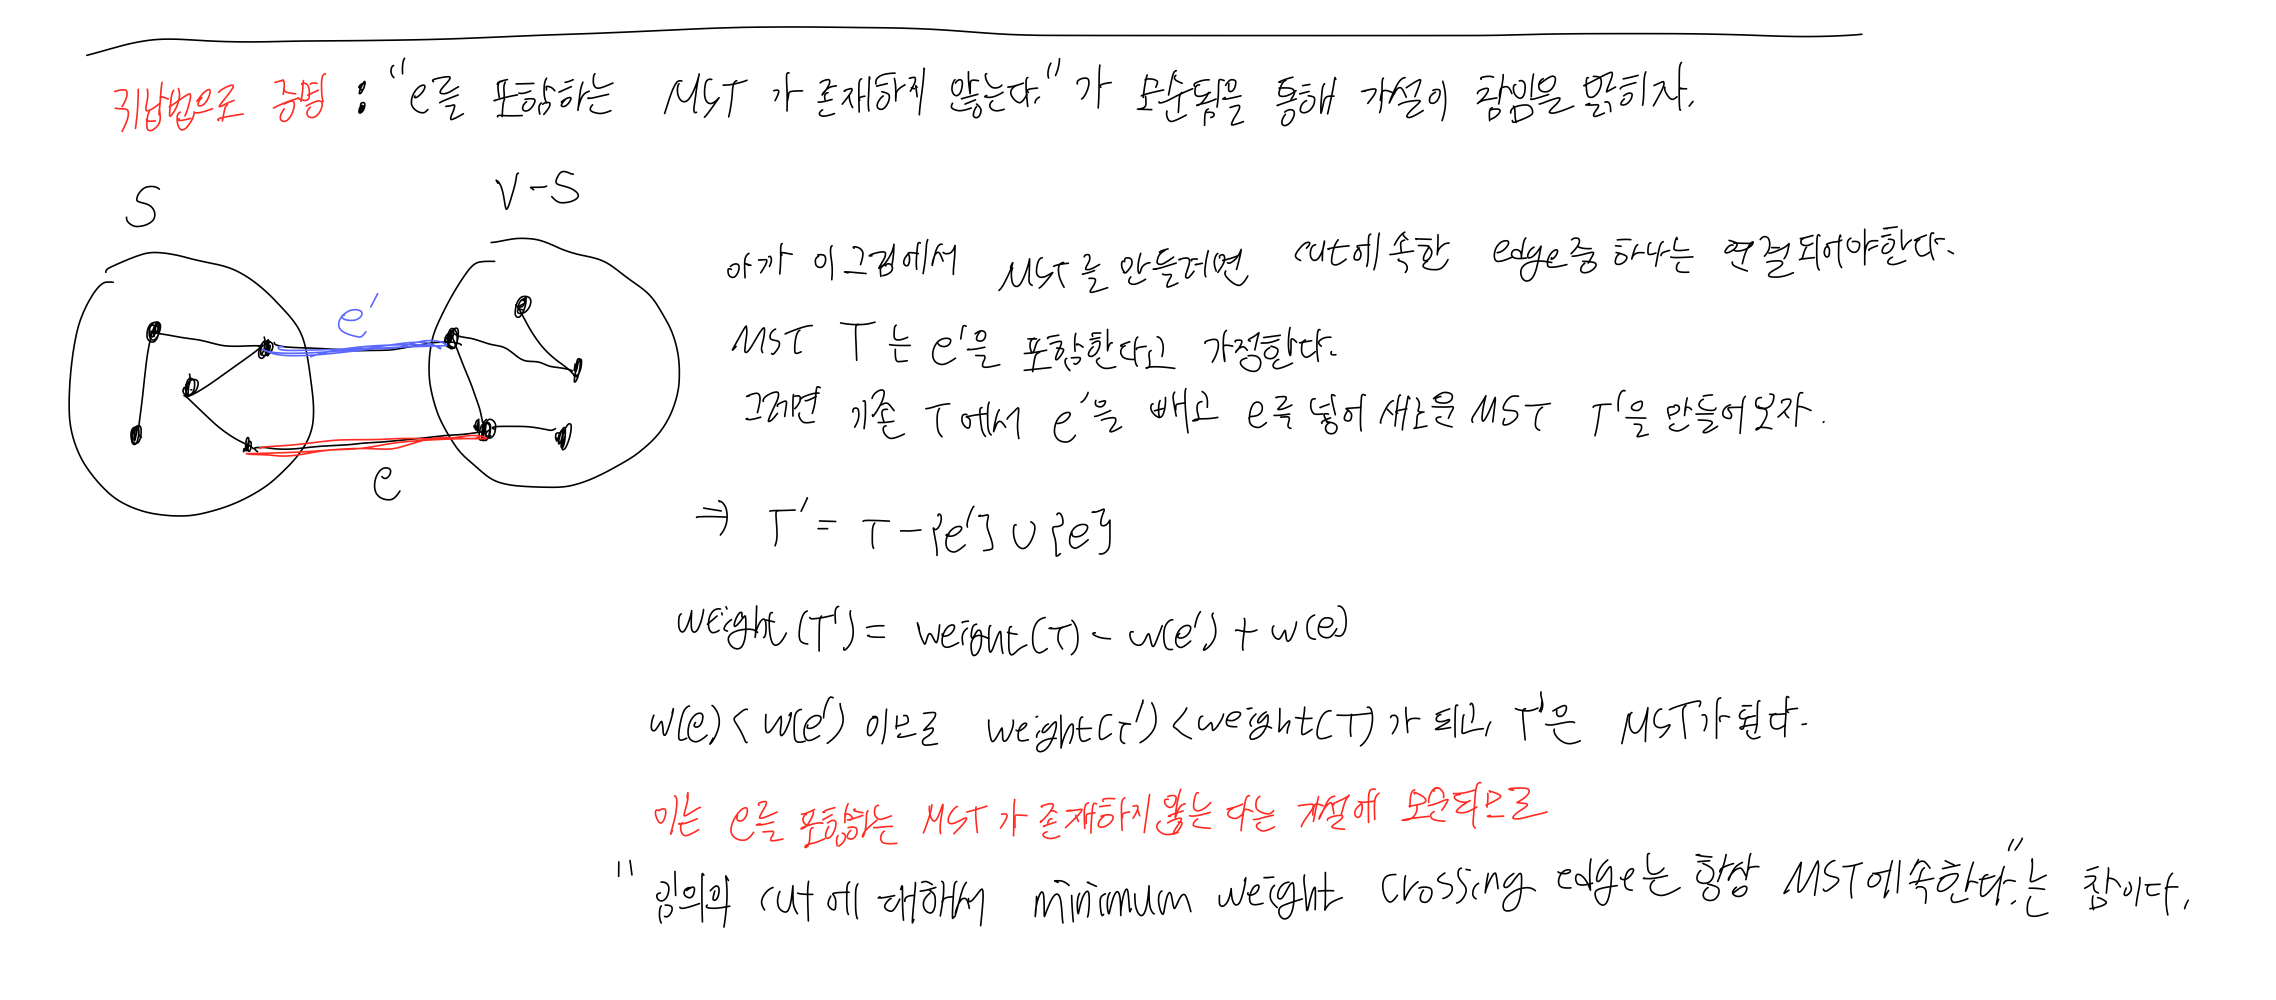 귀납법으로 증명 : "e를 포함하는 MST가 존재하지 않는다."가 모순됨을 통해 가설이 참임을 밝히자.
S
V-S
e'
e
아까 이그림에서 MST를 만들려면 cut에 속한 edge중 하나는 연결되어야한다.
MST T는 e'을 포함한다고 가정한다.
그러면 기존 T에서 e'을 빼고 e를 넣어 새로운 MST T'을 만들어보자.
⇒ T' = T - {e'} ∪ {e}
weight(T') = weight(T) - w(e') + w(e)
w(e) < w(e') 이므로 weight(T') < weight(T)가 되고, T'은 MST가 된다.
이는 e를 포함하는 MST가 존재하지않는 다는 가설에 모순되므로
"임의의 cut에 대해서 minimum weight crossing edge는 항상 MST에 속한다."는 참이다.